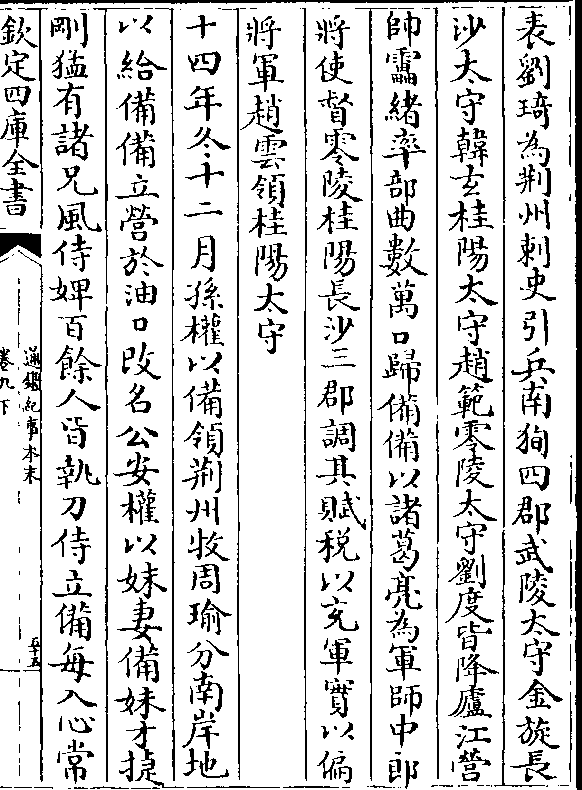 表劉琦為荆州刺史引兵南狥四郡武陵太守金旋長
沙太守韓玄桂陽太守趙範零陵太守劉度皆降廬江營
帥靁緒率部曲數萬口歸備備以諸葛亮為軍師中郎
將使督零陵桂陽長沙三郡調其賦税以充軍實以偏
將軍趙雲領桂陽太守
十四年冬十二月孫權以備領荆州牧周瑜分南岸地
以給備備立營於油口改名公安權以妹妻備妹才捷
剛猛有諸兄風侍婢百餘人皆執刀侍立備每入心常
欽定四庫全書
通鑑紀事本末
卷九下
五十五